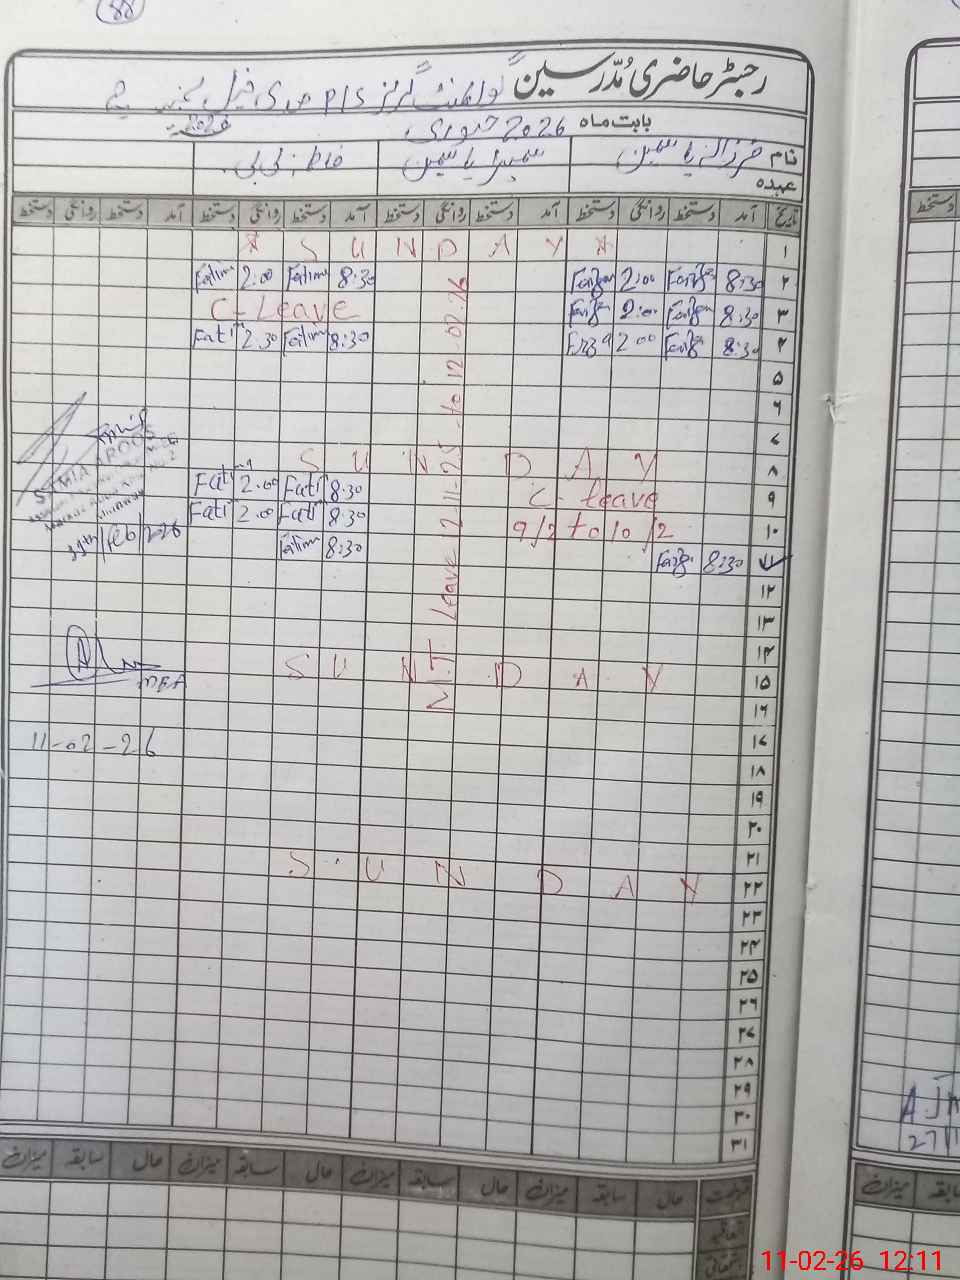 رجسٹر حاضری مُدّرسین گورنمنٹ گرلز P/S
بابت ماہ فروری 2026
نام فرزانہ یاسمین سمیرا یاسمین فاطمہ بی بی
عہدہ
تاریخ آمد دستخط روانگی دستخط آمد دستخط روانگی دستخط آمد دستخط روانگی دستخط آمد دستخط روانگی دستخط
۱ * SUNDAY *
۲ 8:30 2:00 8:30 Fatima 2:00 Fatima
۳ 8:30 2:00 C-Leave
۴ 8:30 2:00 8:30 Fatima 2:30 Fati
۵
۶
۷
۸ SUNDAY
۹ C-leave 8:30 Fati 2:00 Fati
۱۰ 9/2 to 10/2 8:30 Fati 2:00 Fati
۱۱ 8:30 8:30 Fatima
۱۲
۱۳
۱۴
۱۵ SUNDAY
۱۶
۱۷
۱۸
۱۹
۲۰
۲۱
۲۲ SUNDAY
۲۳
۲۴
۲۵
۲۶
۲۷
۲۸
۲۹
۳۰
۳۱
M.T. Leave 12-11-25 to 12-02-26
11th Feb 2026
MEA
11-02-26
رخصت حال سابقہ میزان حال سابقہ میزان حال سابقہ میزان حال سابقہ میزان
اتفاقیہ
دستخط
میزان سابقہ
27/1
11-02-26 12:11